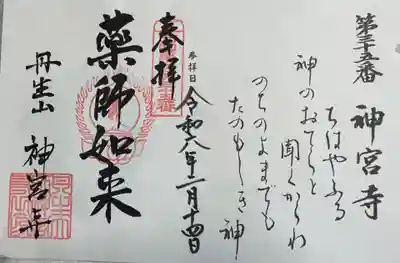 第三十五番 神宮寺
ちはやふる
神のおてらと 聞くからわ
のちのよまでも
たのもしき神
参拝日 令和八年二月十四日
奉拝
薬師如来
丹生山 神宮寺